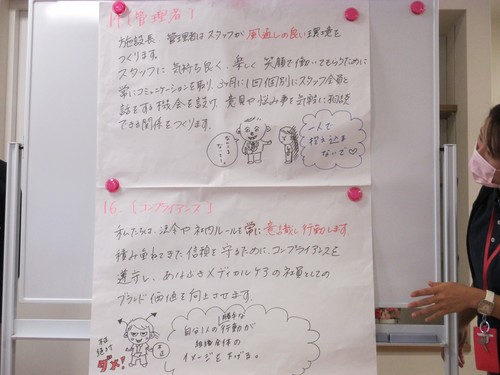 【管理者】
施設長、管理者はスタッフが風通しの良い環境を
つくります。
スタッフに気持ち良く、楽しく笑顔で働いてもらうために
常にコミュニケーションを取り、3ヶ月に1回個別にスタッフ全員と
話をする機会を設け、意見や悩み事を気軽に相談
できる関係をつくります。
一人で
抱え込ま
ないで♡
16.【コンプライアンス】
私たちは、法令や社内ルールを常に意識し行動します
積み重ねてきた信頼を守るために、コンプライアンスを
遵守し、あなぶきメディカルケアの社員としての
ブランド価値を向上させます。
絶対
ダメ!
勝手な
自分1人の行動が
組織全体の
イメージを下げる。